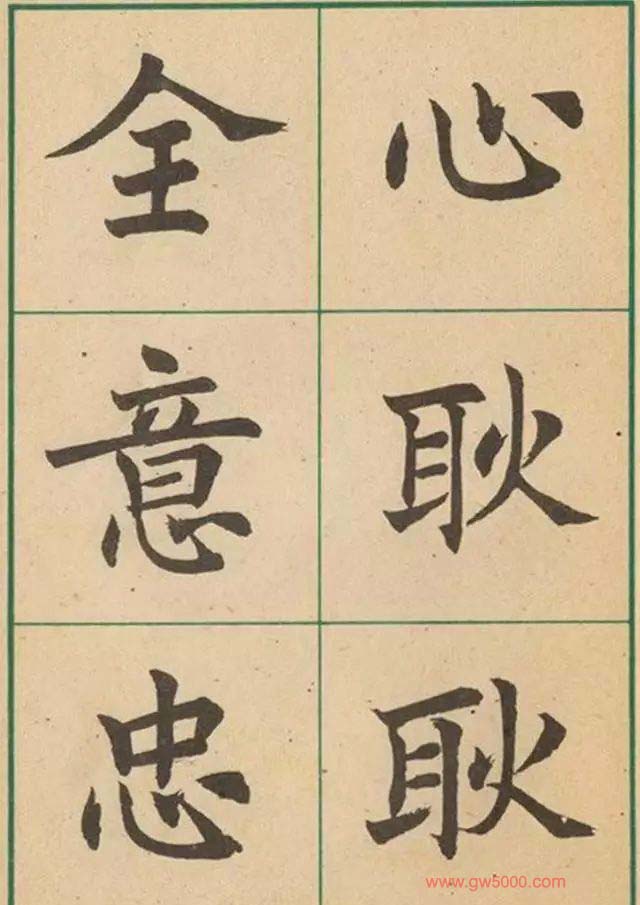 全意忠
心耿耿
www.gw5000.com